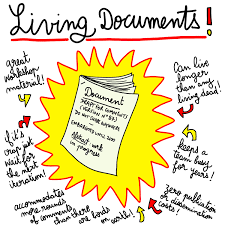 Living Documents!
Great
workshop
material!
Can live
longer than
any
living dead!
Document
DRAFT FOR COMMENTS
(VERSION N°83)
DO NOT QUOTE ANYWHERE
EMBARGOED UNTIL 2050
Abstract work
in progress
if it's
crap just
wait for
the next
iteration!
keeps a
team busy
for years!
accommodates
more rounds
of comments
than there are
on world!
zero publication
or dissemination
costs!